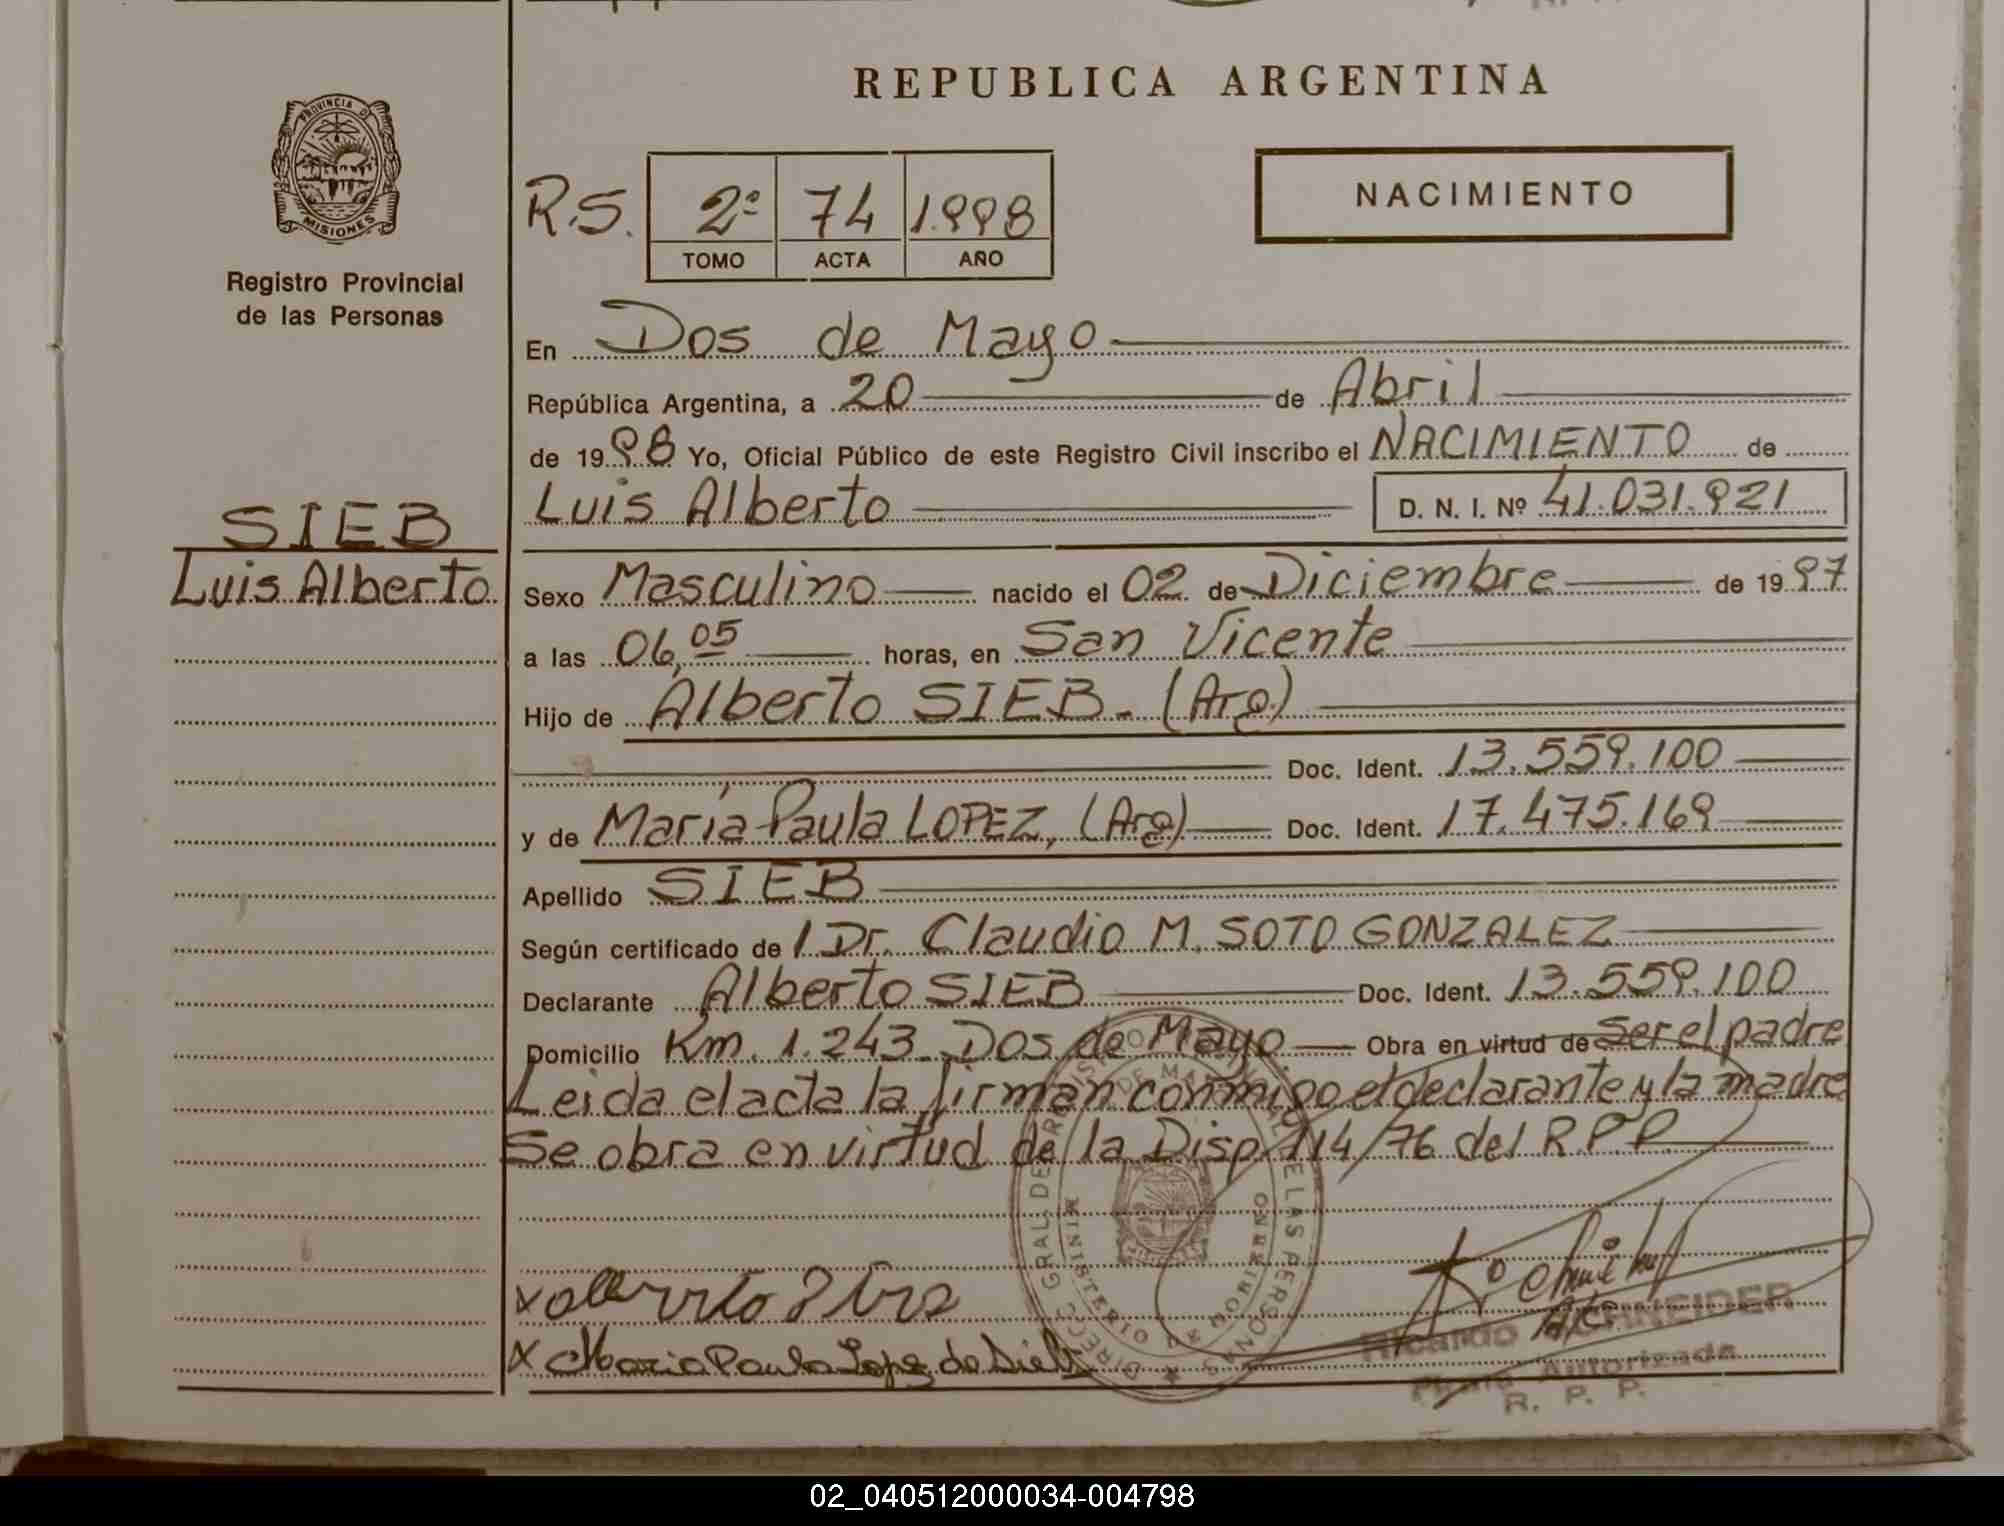 REPUBLICA ARGENTINA
PROVINCIA D
MISIONES
Registro Provincial
de las Personas
NACIMIENTO
R.S. 2º 74 1.998
TOMO ACTA AÑO
En Dos de Mayo
República Argentina, a 20 de Abril
de 1998 Yo, Oficial Público de este Registro Civil inscribo el NACIMIENTO de
Luis Alberto D. N. I. Nº 41.031.921
SIEB
Luis Alberto
Sexo Masculino nacido el 02 de Diciembre de 1997
a las 06,05 horas, en San Vicente
Hijo de Alberto SIEB - (Arg)
Doc. Ident. 13.559.100
y de María Paula LOPEZ, (Arg) Doc. Ident. 17.475.169
Apellido SIEB
Según certificado de l Dr. Claudio M. SOTO GONZALEZ
Declarante Alberto SIEB Doc. Ident. 13.559.100
Domicilio Km. 1.243 - Dos de Mayo Obra en virtud de ser el padre
Leida el acta la firman conmigo el declarante y la madre
Se obra en virtud de la Disp. 114/76 del R.P.P.
DIRECC. GRAL. DE
DE LAS PERSONAS
MINISTERIO
GOBIERNO
x Alberto Sieb
x Maria Paula Lopez de Sieb
Ricardo SCHNEIDER
Firma Autorizada
R. P. P.
02_040512000034-004798